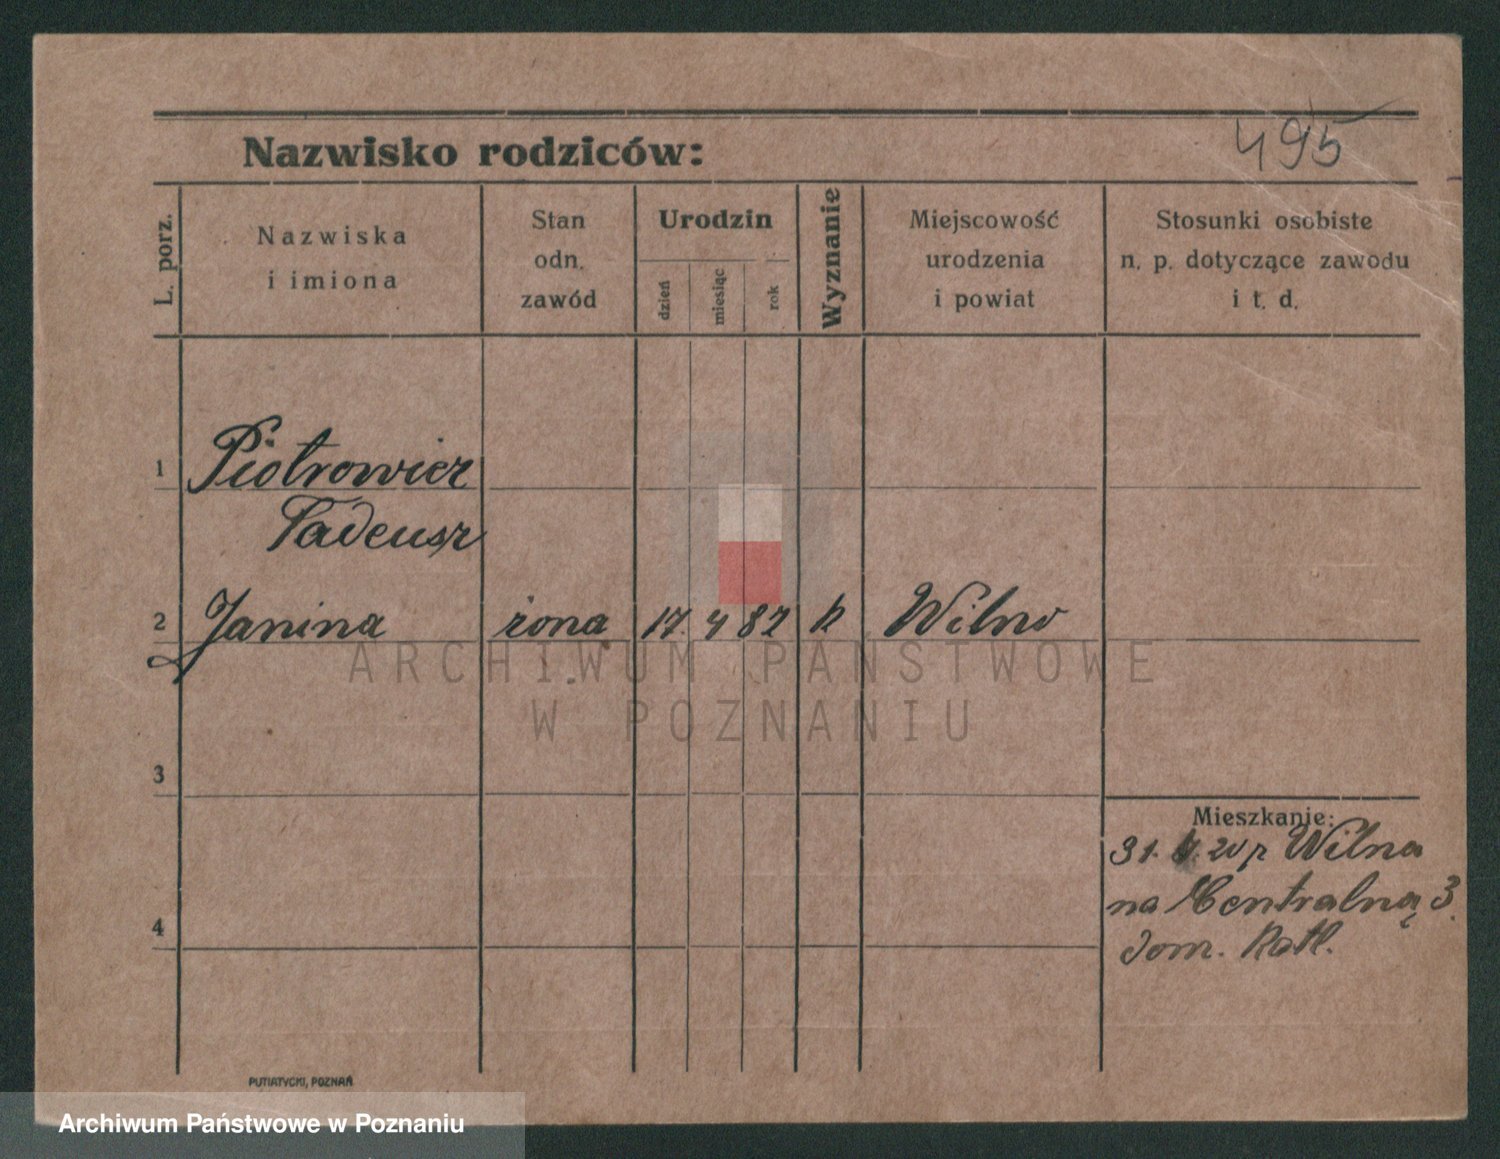 495
Nazwisko rodziców:
L. porz.
Nazwiska
i imiona
Stan
odn.
zawód
Urodzin
dzień
miesiąc
rok
Wyznanie
Miejscowość
urodzenia
i powiat
Stosunki osobiste
n. p. dotyczące zawodu
i t. d.
1 Piotrowicz
Tadeusz
2 Janina żona 17. 4 82 k Wilno
ARCHIWUM PAŃSTWOWE
W POZNANIU
3
Mieszkanie:
31. 20 z Wilna
na Centralną 3.
dom. Katl.
4
PUTIATYCKI, POZNAŃ
Archiwum Państwowe w Poznaniu